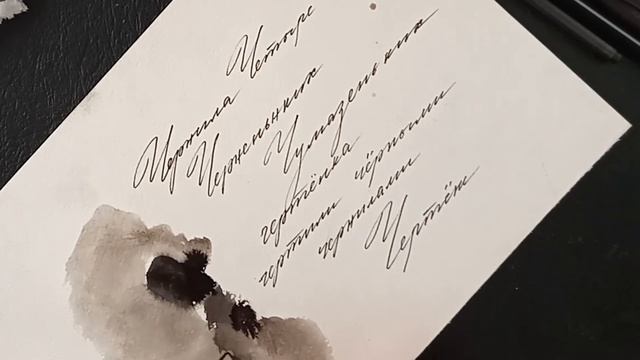 Чернила Четыре
Черненьких
Чумазеньких
чертёнка
чертили чёрными
чернилами
Чертёж